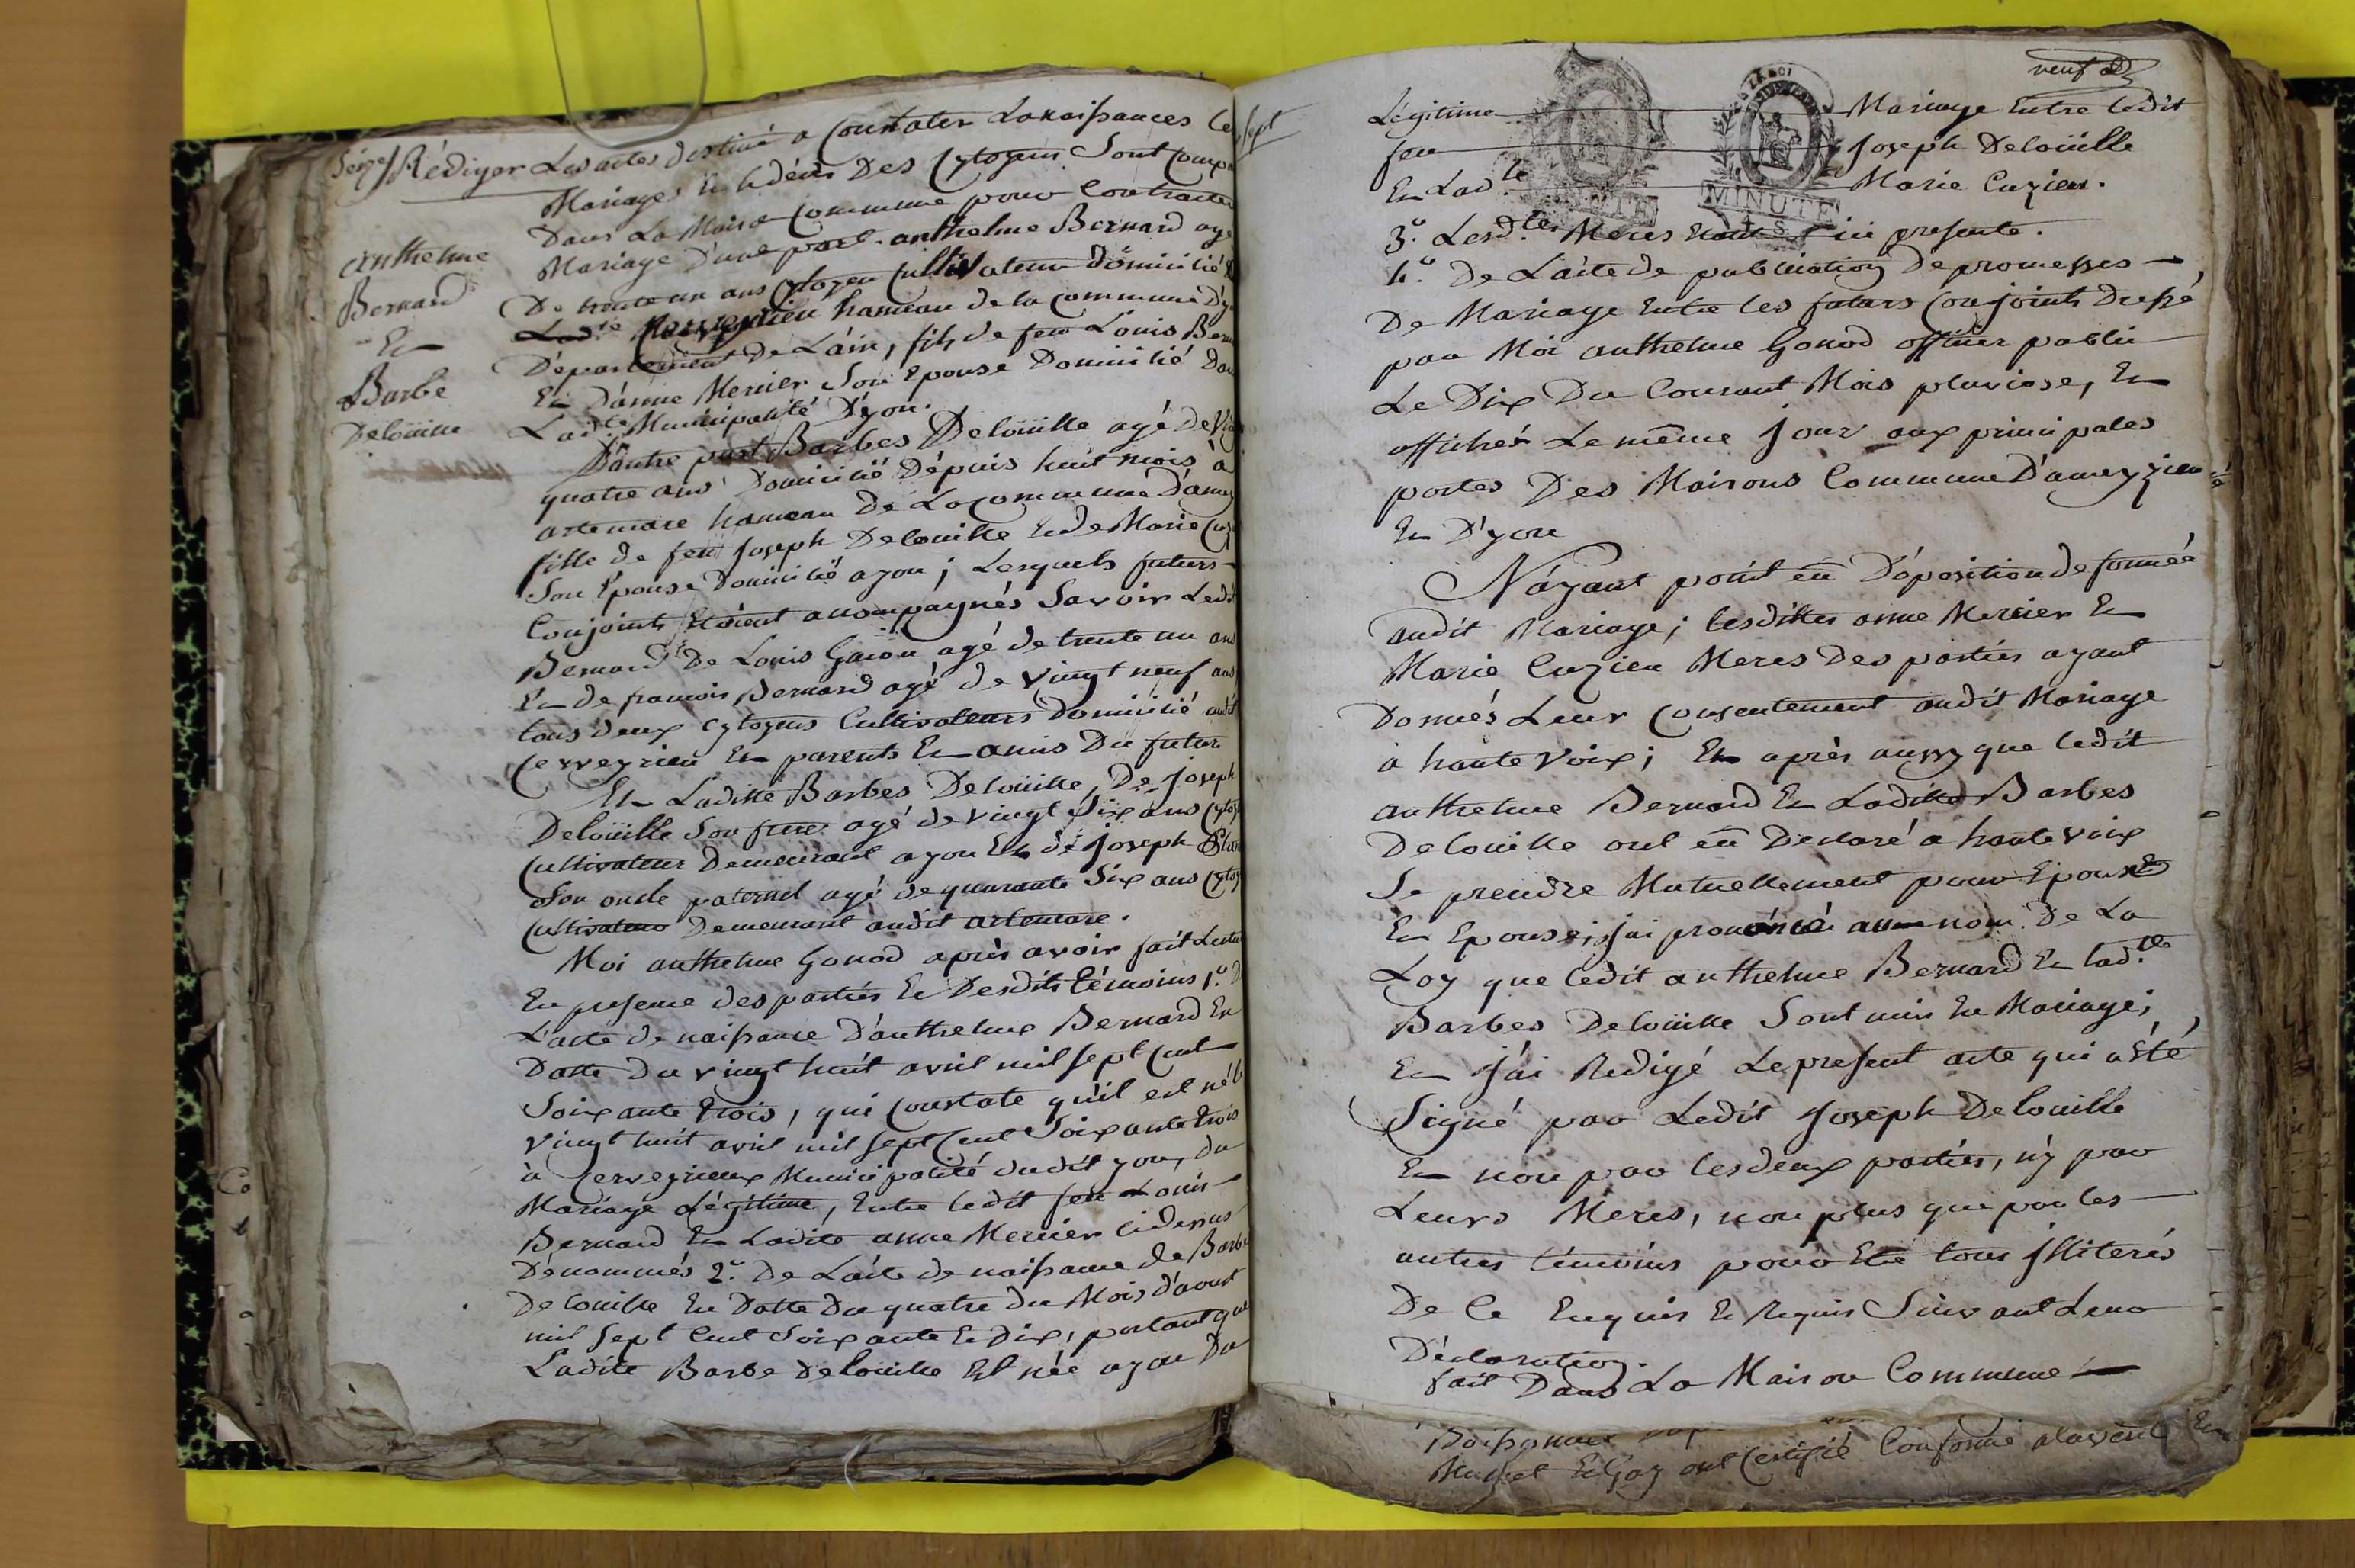 Seize Rédiger Les actes destiné a Constater La naissances les
Mariages Et le décès Des Cytoyens Sont Comp
Dans La Maison Commune pour Contracter
Mariage D'une part. anthelme Bernard agé
De trente un ans Cytoyen Cultivateur domicilié
hameau de la Commune D'y
Département de L'ain, fils de feu Louis Bern
Et D'anne Mercier Son Epouse Domicilié Dan
Lad.te Municipalité D'yon.
anthelme
Bernard
Et
Barbe
Deloüille
D'autre part Barbes Deloüille agé de Vin
quatre ans Domicilié Dépuis huit mois a
artemare hameau De La Commune D'amey
fille de feu Joseph Deloüille Et de Marie Cuz
Son Epouse Domicilié a yon ; Lesquels futurs
Conjoints Etoient accompagnés Savoir Ledit
Bernard De Louis Garon agé de trente un ans
Et de francois Bernard agé de vingt neuf ans
tous deux Cytoyens Cultivateurs Domicilié audit
Cerveyrieu Et parents Et amis Du futur
Et Laditte Barbes Deloüille, De Joseph
Deloüille Son frere agé de vingt Six ans Cytoy
Cultivateur Demeurant a yon Et de Joseph
Son oncle paternel agé de quarante Six ans Cytoy
Cultivateur Demeurant audit artemare.
Moi anthelme Gonod après avoir fait Lectu
En presence des parties Et Desdits témoins 1.° D
L'acte de naissance D'anthelme Bernard En
Datte Du vingt huit avril mil sept Cent
Soixante trois, qui Constate qu'il est né le
vingt huit avril mil sept Cent Soixante trois
à Cerveyrieux Municipalité dudit yon, du
Mariage Légitime, Entre ledit feu Louis
Bernard Et Ladite anne Mercier cidessus
Dénommés 2.° De L'acte de naissance de Barbe
Deloüille En Datte Du quatre du Mois d'aoust
mil Sept Cent Soixante Et Dix, portant que
Ladite Barbe Deloüille Est née a yon Du
sept
neuf
Légitime Mariage Entre ledit
feu Joseph Deloüille
Et Lad.te Marie Cuzieu.
MINUTE
MINUTE
3.° Lesd.tes Meres ici presente.
4.° De L'acte de publication De promesses
De Mariage Entre les futurs Conjoints Dressé
par Moi anthelme Gonod officier public
Le Dix Du Courant Mois pluviose, Et
affiches Le même Jour aux principales
portes Des Maisons Commune D'ameyzieu
Et D'yon
N'ayant point eü D'oposition de formée
audit Mariage ; lesdittes anne Mercier Et
Marie Cuzieu Meres Des parties ayant
Donnés Leur Consentement audit Mariage
à haute Voix ; Et après aussy que ledit
anthelme Bernard Et Laditte Barbes
Deloüille ont eü Declaré a haute voix
Se prendre Mutuellement pour Epoux
Et Epouse, j'ai prononcé au nom De La
Loy que ledit anthelme Bernard Et lad.te
Barbes Deloüille Sont unis En Mariage ;
Et j'ai Redigé Le present acte qui a Eté
Signé par Ledit Joseph Deloüille
Et non par les deux parties, n'y par
Leurs Meres, non plus que par les
autres témoins pour Etre tous illiterés
De Ce Enquis Et Requis Suivant Leur
Déclaration.
fait Dans La Maison Commune
ont Certifié Conforme